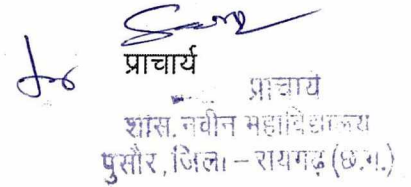 प्राचार्य
प्राचार्य
शास. नवीन महाविद्यालय
पुसौर, जिला – रायगढ़ (छ.ग.)